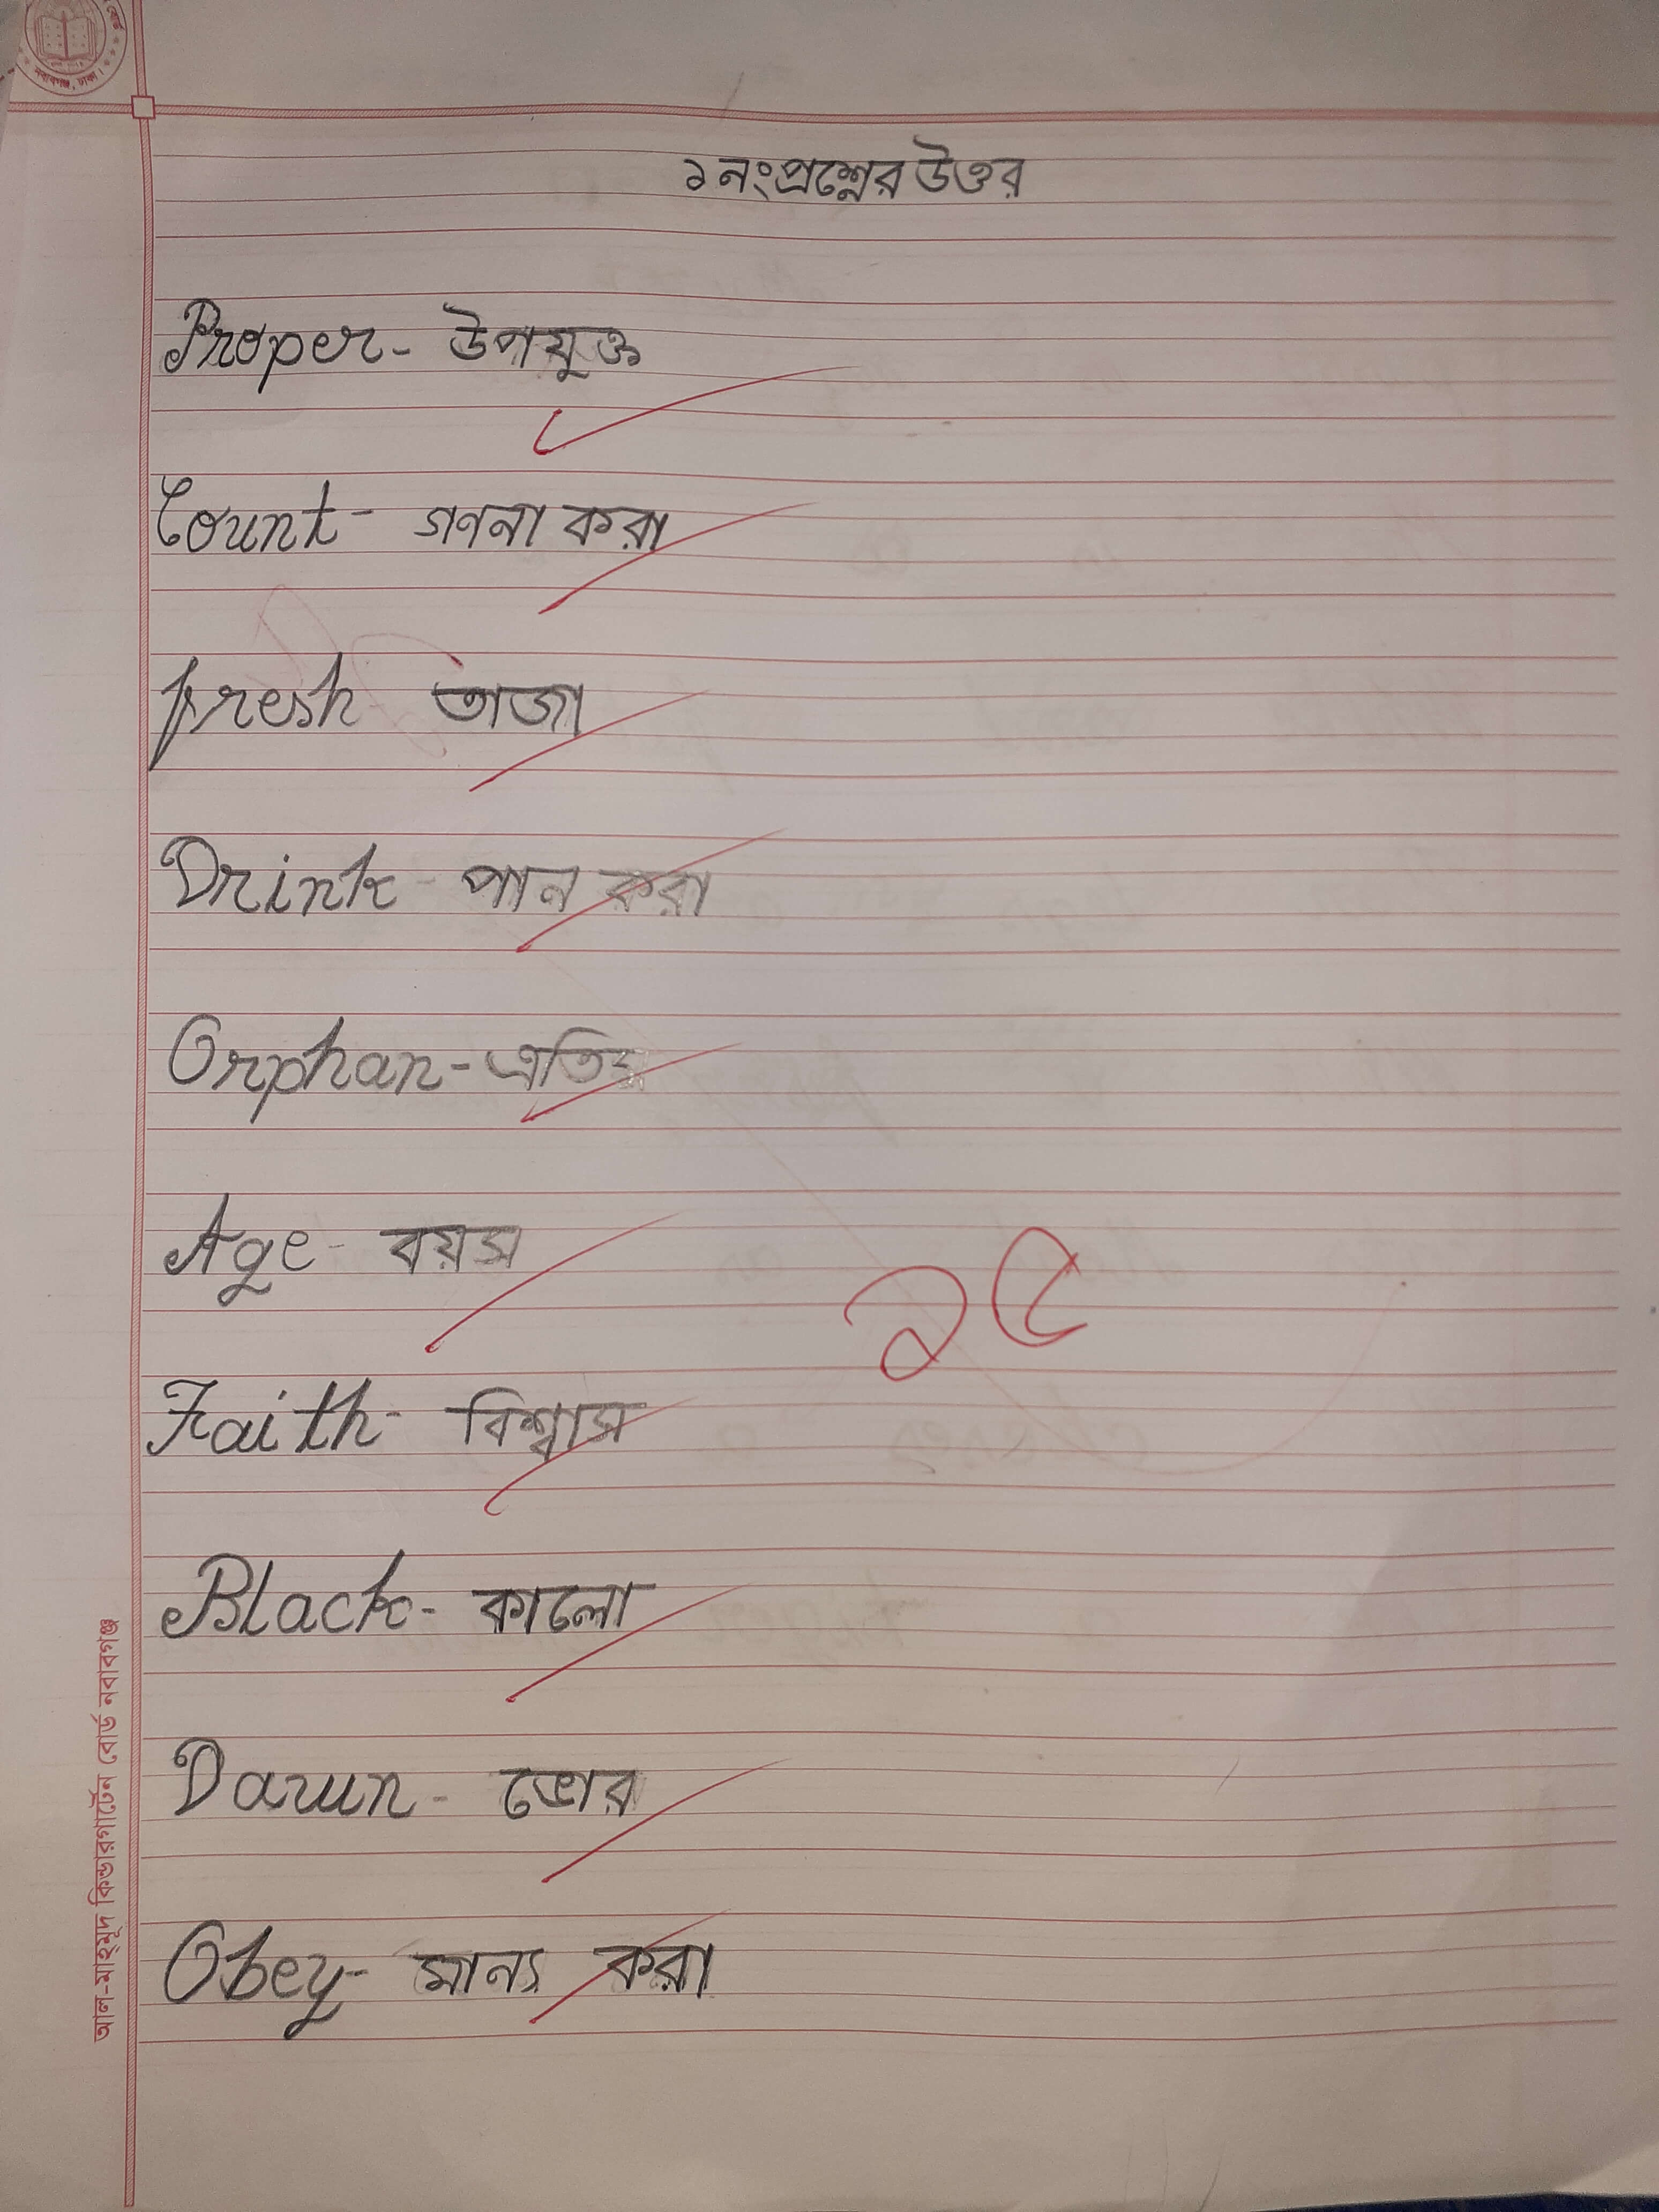 নবাবগঞ্জ, ঢাকা।
১ নং প্রশ্নের উওর
Proper- উপযুক্ত
Count- গণনা করা
fresh তাজা
Drink- পান করা
Orphan- এতিম
Age- বয়স
১৫
Faith- বিশ্বাস
Black- কালো
Dawn- ভোর
Obey- মান্য করা
আল-মাহমুদ কিন্ডারগার্টেন বোর্ড নবাবগঞ্জ